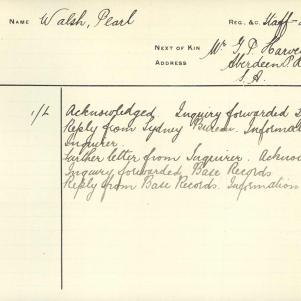 NAME Walsh, Pearl REG., &C. Staff-
NEXT OF KIN Mr G. P. Harve
ADDRESS Aberdeen P.
S.A.
1/L Acknowledged Inquiry forwarded
Reply from Sydney Bureau. Informat
Inquirer.
Further letter from Inquirer. Acknow
Inquiry forwarded Base Records
Reply from Base Records. Information